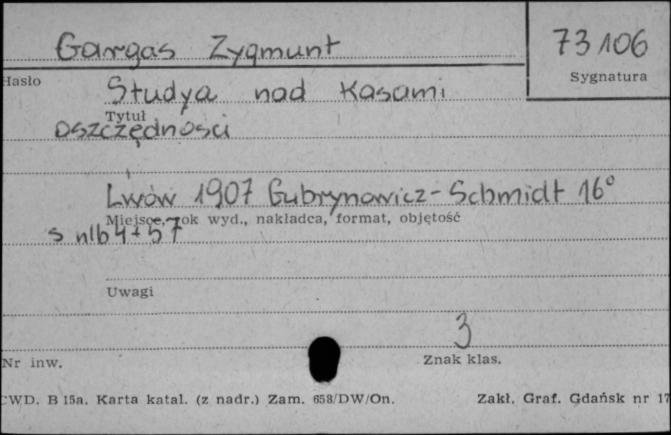 Gargas Zygmunt
73106
Hasło
Sygnatura
Studya nad Kasami
Tytuł
oszczędnosci
Lwów 1907 Gubrynowicz-Schmidt 16°
Miejsce, rok wyd., nakładca, format, objętość
s nlb 4+57
Uwagi
3
Nr inw.
Znak klas.
CWD. B 15a. Karta katal. (z nadr.) Zam. 658/DW/On.
Zakł. Graf. Gdańsk nr 17